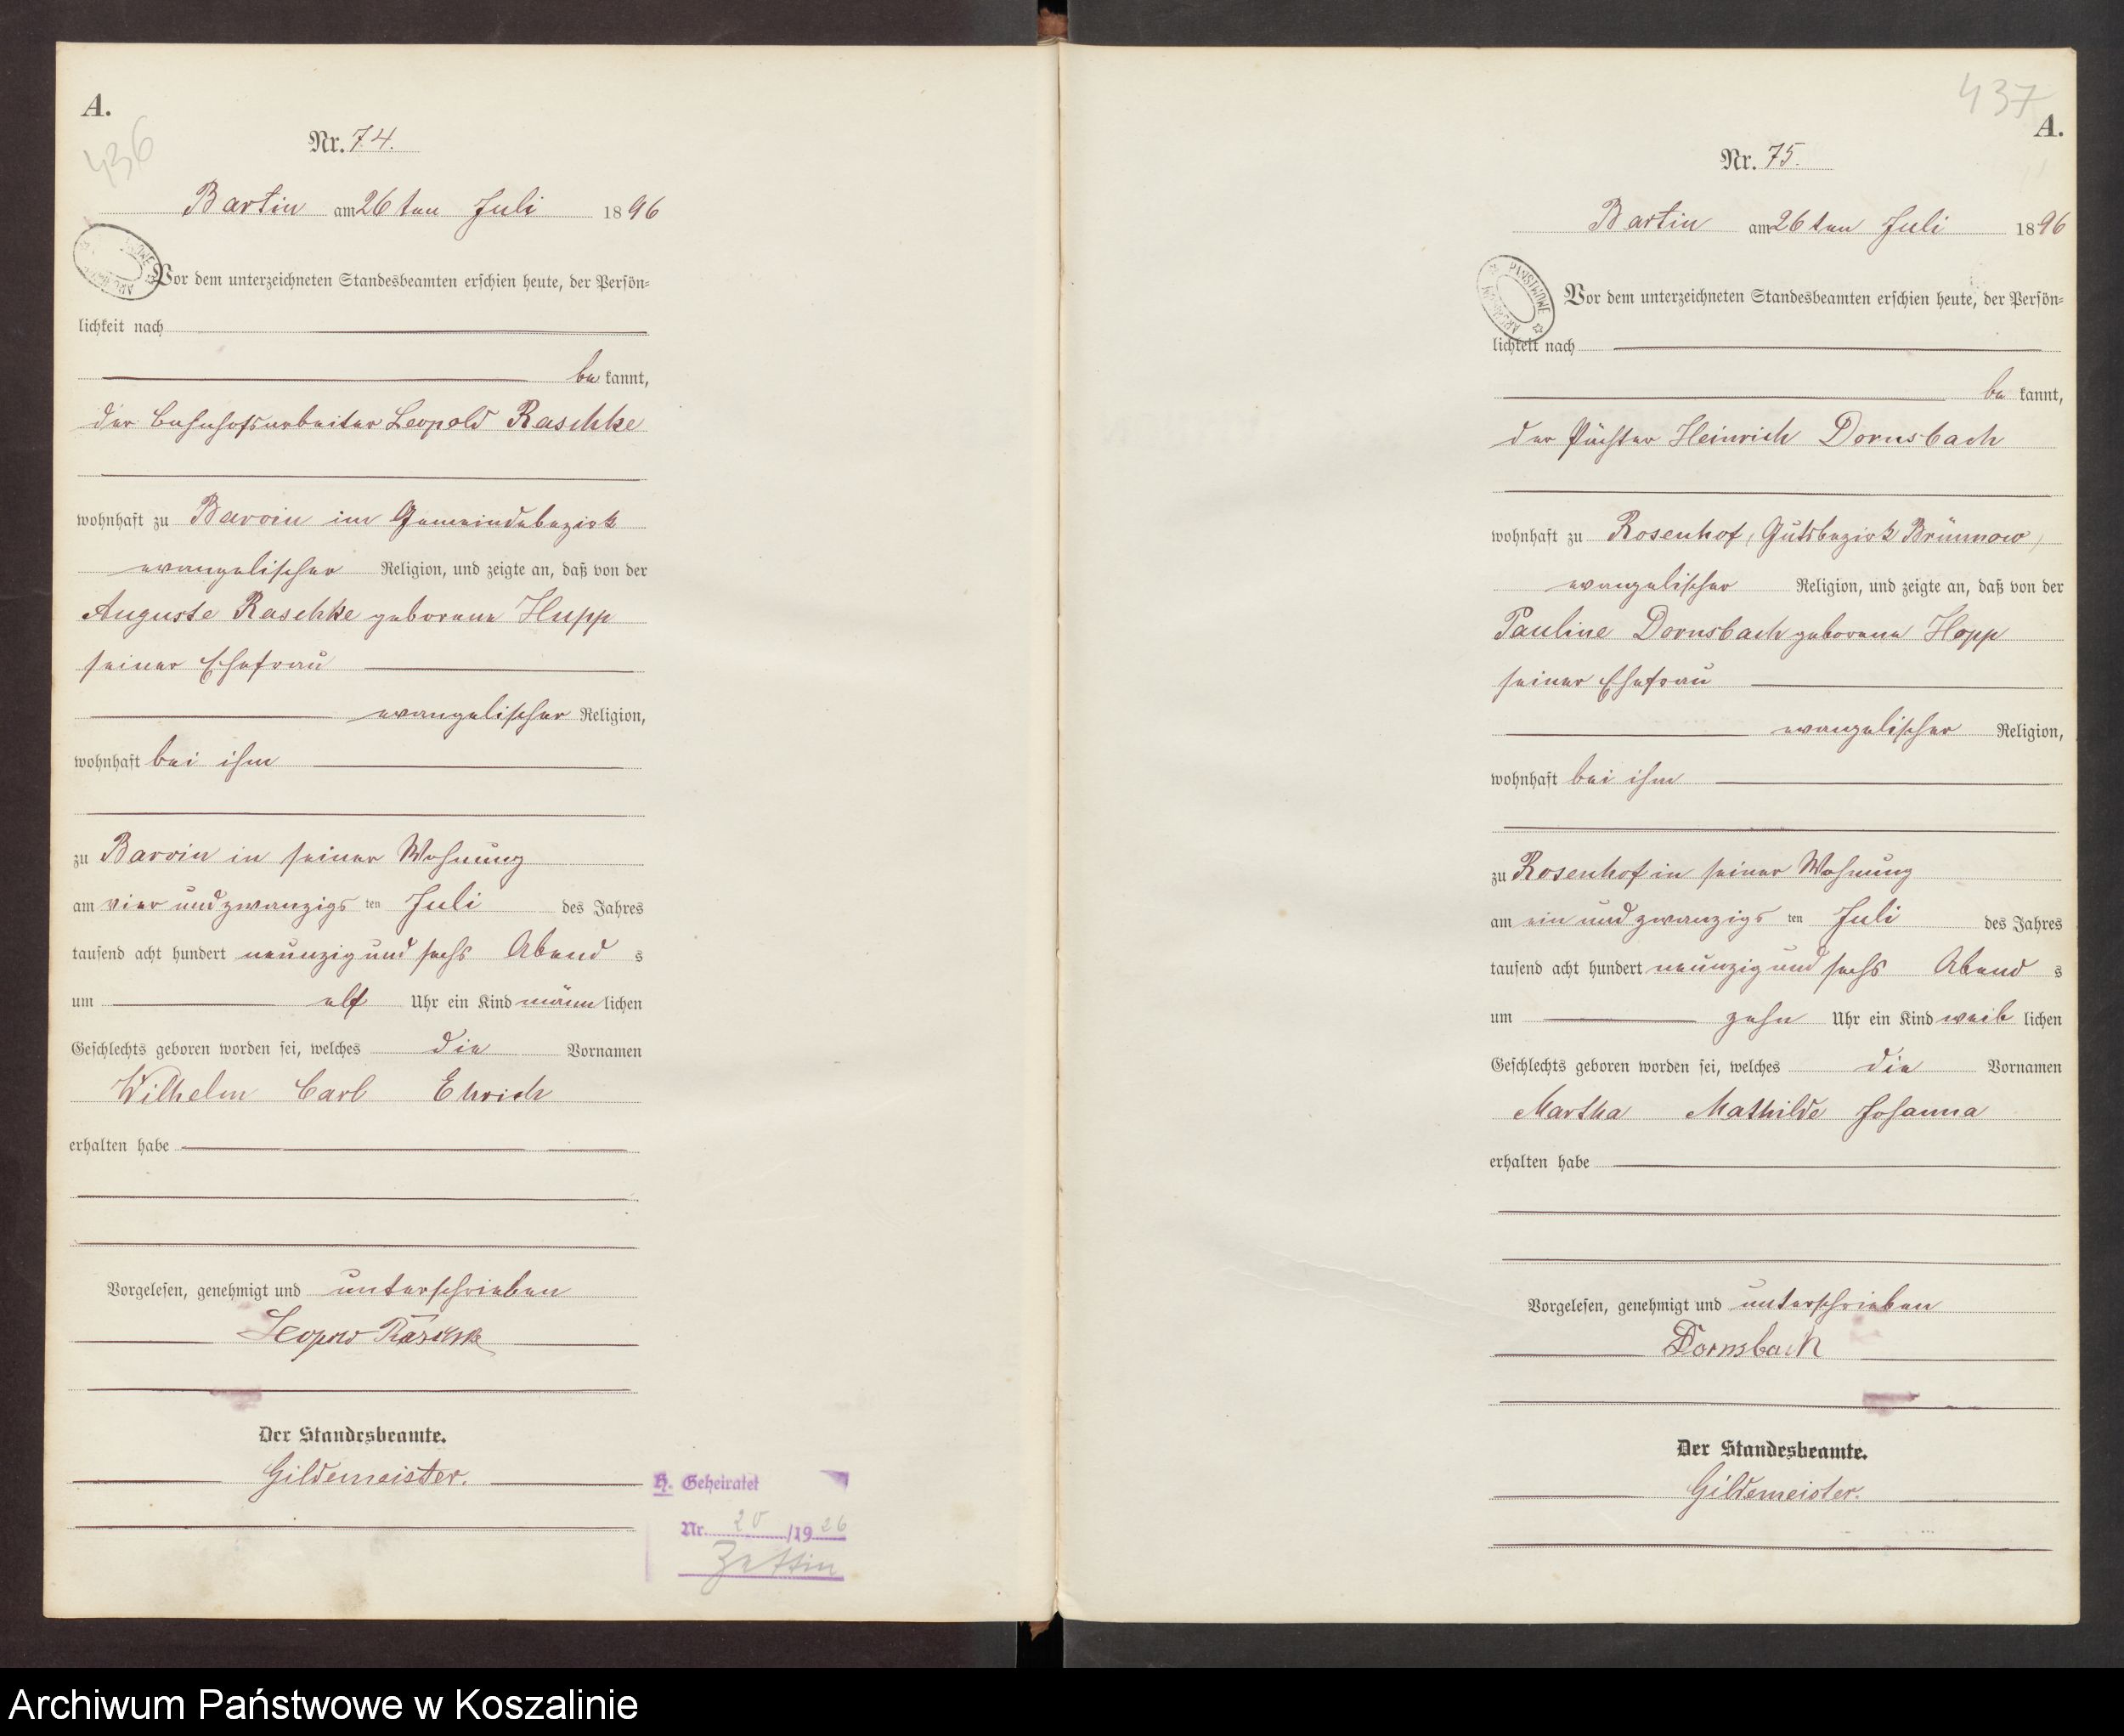 A.
436
Nr. 74.
Bartin am 26ten Juli 1896
Vor dem unterzeichneten Standesbeamten erschien heute, der Persön=
lichkeit nach
be kannt,
der Bahnhofsarbeiter Leopold Raschke
wohnhaft zu Barvin im Gemeindebezirk
evangelischer Religion, und zeigte an, daß von der
Auguste Raschke geborene Hupp
seiner Ehefrau
evangelischer Religion,
wohnhaft bei ihm
zu Barvin in seiner Wohnung
am vier und zwanzigs ten Juli des Jahres
tausend acht hundert neunzig und sechs Abend s
um elf Uhr ein Kind männ lichen
Geschlechts geboren worden sei, welches die Vornamen
Wilhelm Carl Ehrich
erhalten habe
Vorgelesen, genehmigt und unterschrieben
Leopold Raschke
Der Standesbeamte.
Gildemeister.
H. Geheiratet
Nr. 20 /1926
Zettin
437
A.
Nr. 75.
Bartin am 26ten Juli 1896
PAŃSTWOWE ARCHIWUM
Vor dem unterzeichneten Standesbeamten erschien heute, der Persön=
lichkeit nach
be kannt,
der Pächter Heinrich Dornsbach
wohnhaft zu Rosenhof, Gutsbezirk Brünnow,
evangelischer Religion, und zeigte an, daß von der
Pauline Dornsbach geborene Hopp
seiner Ehefrau
evangelischer Religion,
wohnhaft bei ihm
zu Rosenhof in seiner Wohnung
am ein und zwanzigs ten Juli des Jahres
tausend acht hundert neunzig und sechs Abend s
um zehn Uhr ein Kind weib lichen
Geschlechts geboren worden sei, welches die Vornamen
Martha Mathilde Johanna
erhalten habe
Vorgelesen, genehmigt und unterschrieben
Dornsbach
Der Standesbeamte.
Gildemeister.
Archiwum Państwowe w Koszalinie